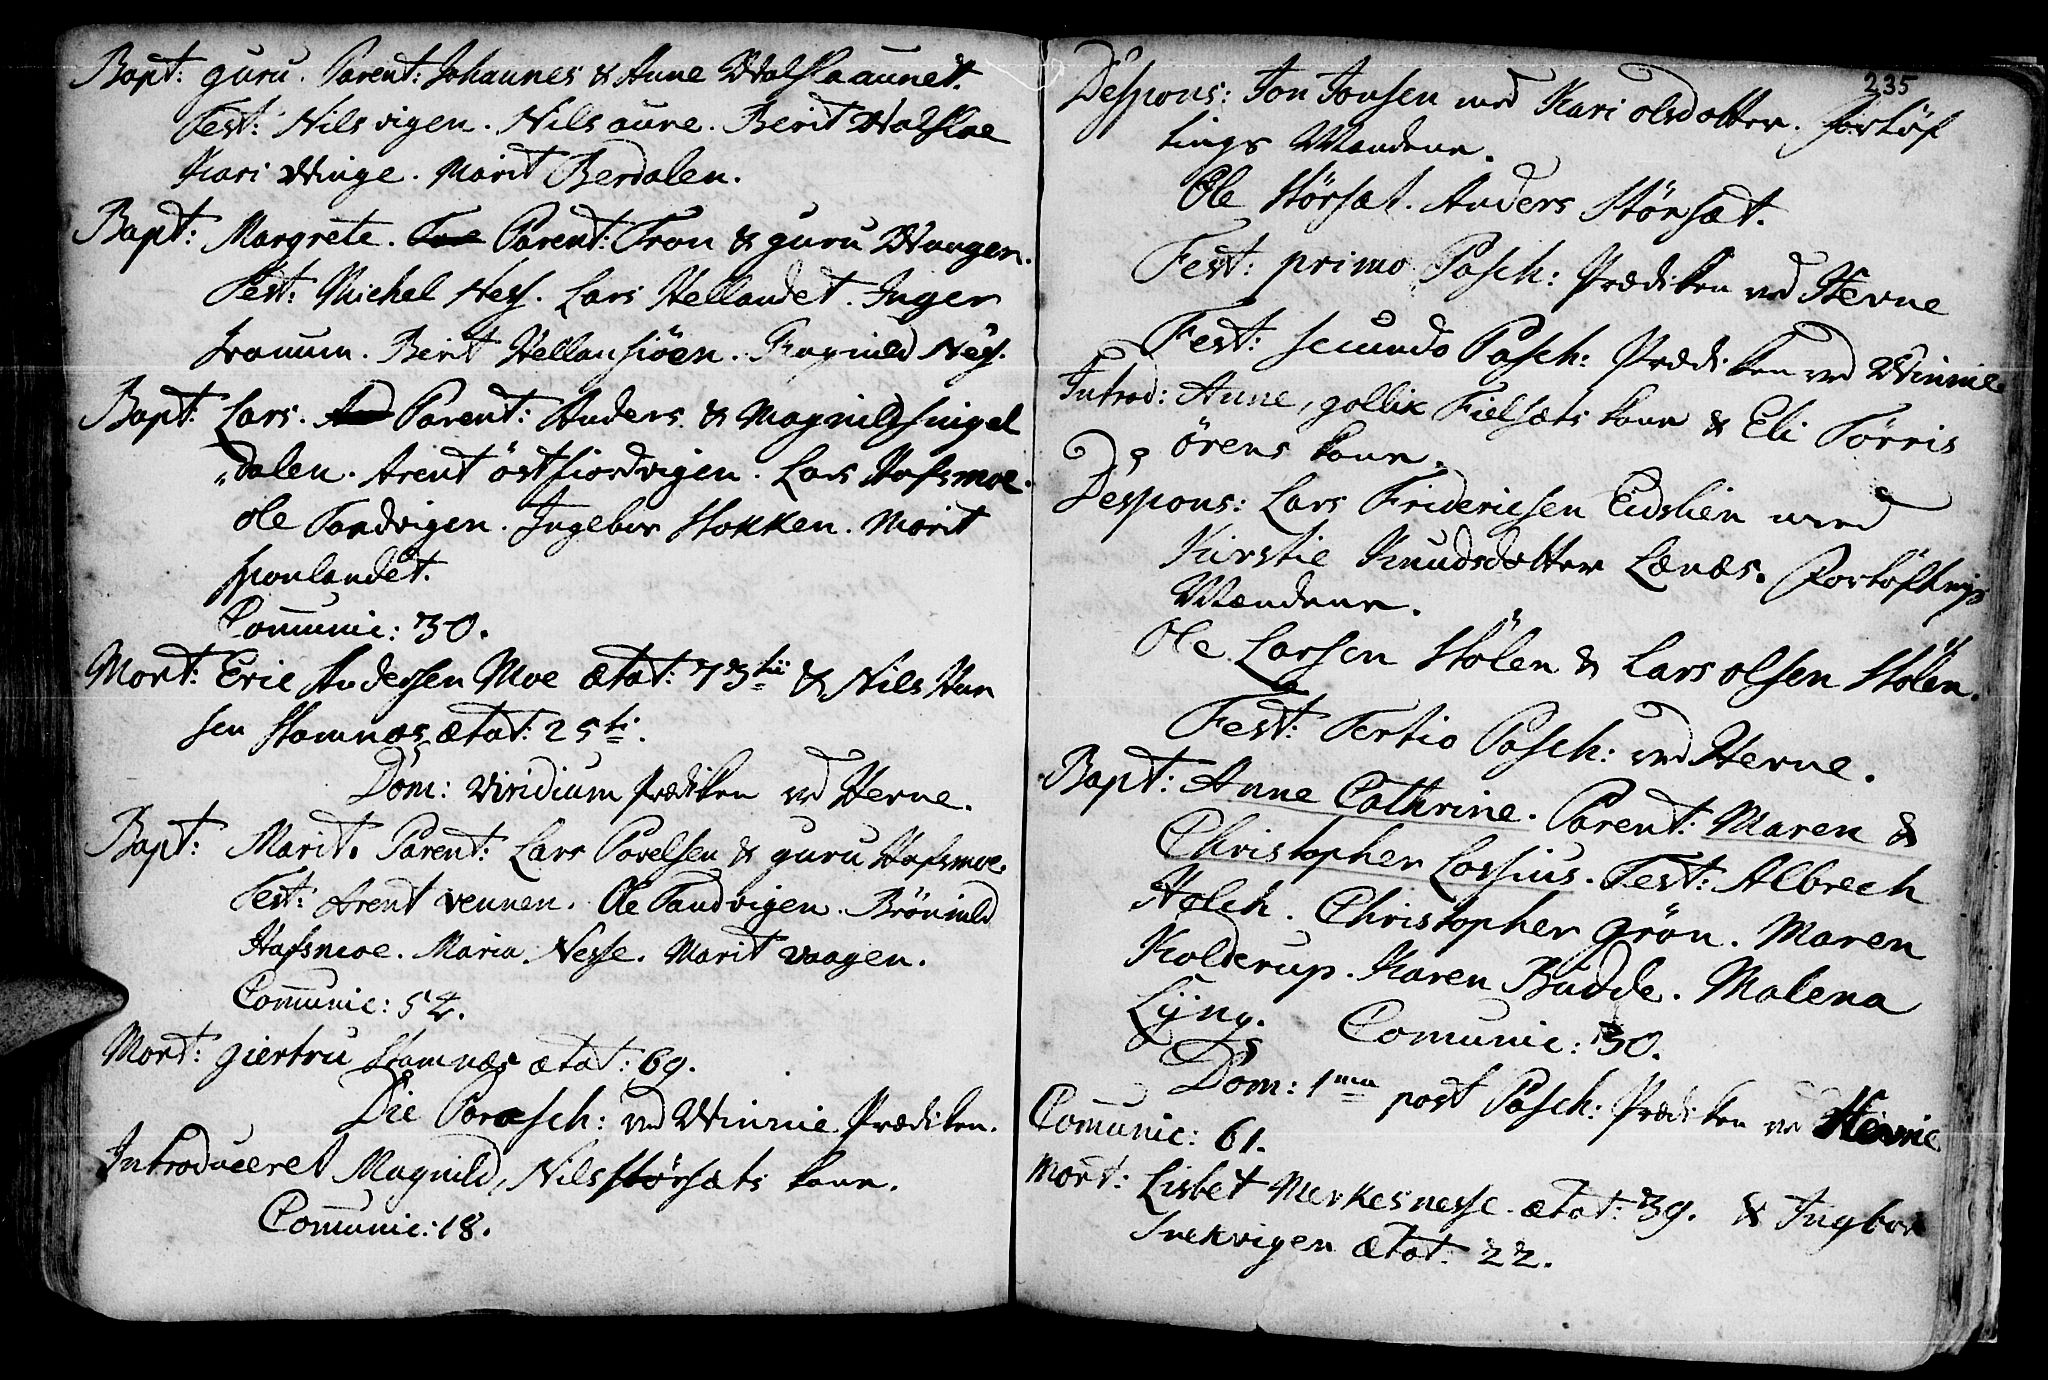 Bapt: guru. Parent: Johannes & Anne Walslaaunet.
Test: Nils vigen. Nils aune. Berit Walsloe
Kari Winge. Marit Berdalen.
Bapt: Margrete. Parent: Tron & guru Waagen.
Test: Michel Ness. Lars Hellandet. Inger
Berit Hellansiöen. Ragnild Ness.
Bapt: Lars. Parent: Anders & Magnild singel
dalen. Arent östfiordvigen. Lars Hafsmoe.
Ole Tandvigen. Ingebor Stokken. Marit
sponlandet.
Comunic: 30.
Mort: Eric Andersen Moe ætat: 73tii & Nils Han
sen Stamnæs ætat: 25ti.
Dom: Viridium Prædiken ved Hevne.
Bapt: Marit. Parent: Lars Povelsen & guru Hafsmoe.
Test: Arent vennen. Ole Tandvigen. Brönild
Hafsmoe. Maria Nesse. Marit vaagen.
Comunic: 54.
Mort: giertru Stamnæs ætat: 69.
Die Parasch: ved Winnie Prædiken.
Introduceret Magnild, Nils störsæts kone.
Comunic: 18.
235
Despons: Jon Jonsen med Kari olsdatter. forlöf
tings Mændene.
Ole Störsæt. Anders Störsæt.
Fest: primo Pasch: Prædiken ved Hevne
Fest: secundo Pasch: Prædiken ved Winnie
Introd: Anne, gollik Fielsæts kone & Eli Törris
örens kone.
Despons: Lars Fridericsen Eidslien med
Kirstie Knudsdatter Lenæs. Forlöftnings
Mændene.
Ole Larsen Stölen & Lars olsen Stölen.
Fest: Tertio Pasch: ved Hevne.
Bapt: Anne Cathrine. Parent: Maren &
Christopher Lossius. Test: Albrech
Holch. Christopher grön. Maren
Kolderup. Karen Budde. Malena
Lyng. Comunic: 30.
Dom: 1ma post Pasch: Prædiken ved Hevne
Comunic: 61.
Mort: Lisbet Merkesnesse ætat: 39. & Ingbor
Snekvigen ætat: 22.